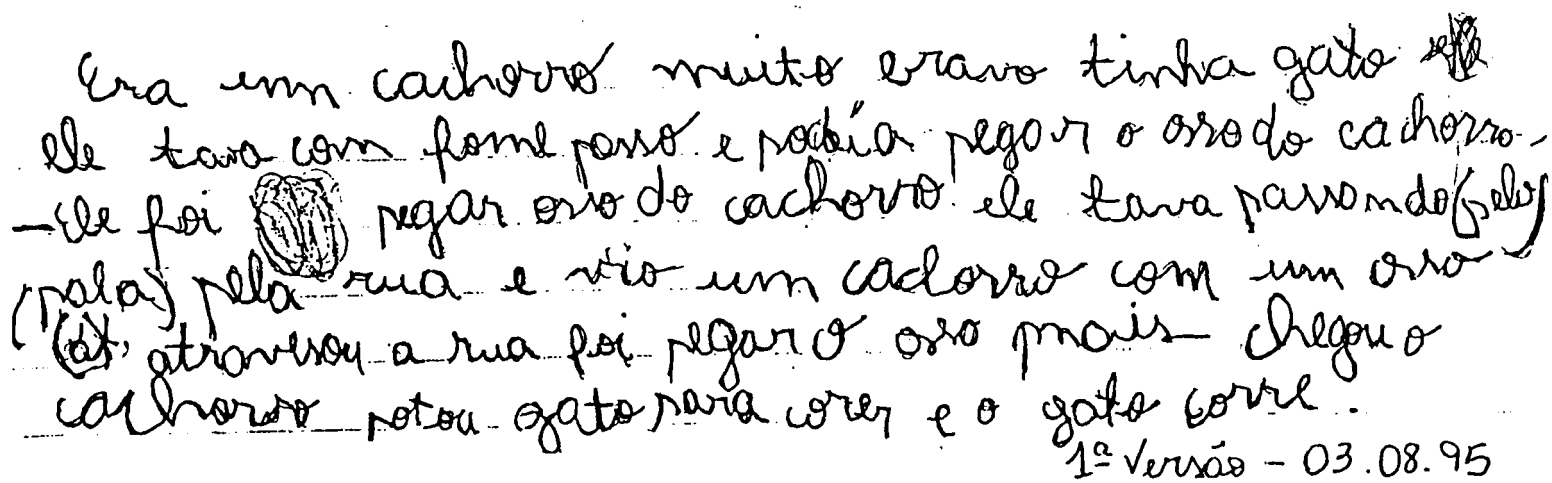 Era um cachorro muito eravo tinha gato
ele tava com fome passo e podia pegar o osso do cachorro.
– Ele foi pegar osso do cachorro. ele tava passando (pelo)
(pala) pela rua e vio um cachorro com um osso
(at) atravesou a rua foi pegar o osso mais chegou o
cachorro potou gato para corer e o gato corre.
1ª Versão – 03.08.95